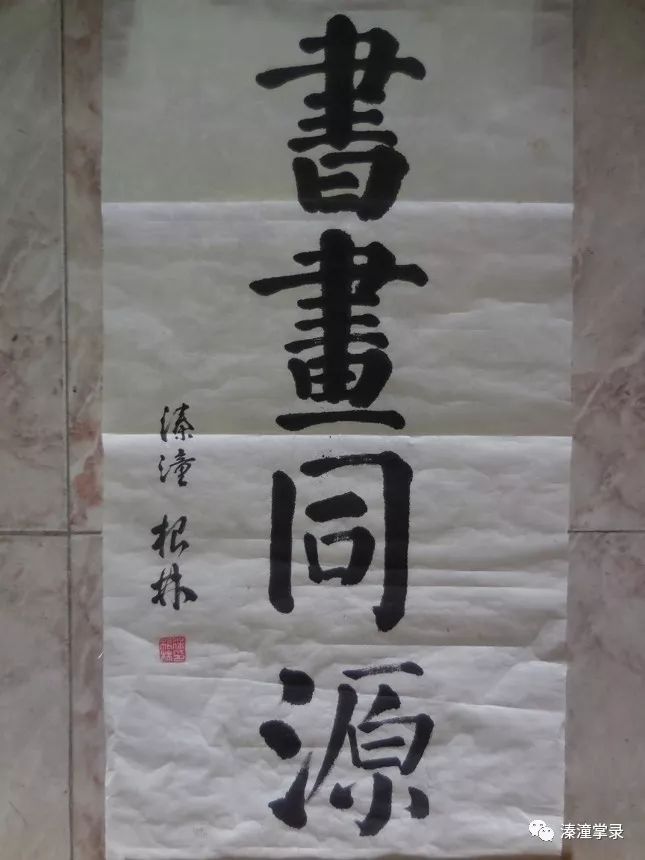 書畫同源
溱潼 根林
溱潼掌录